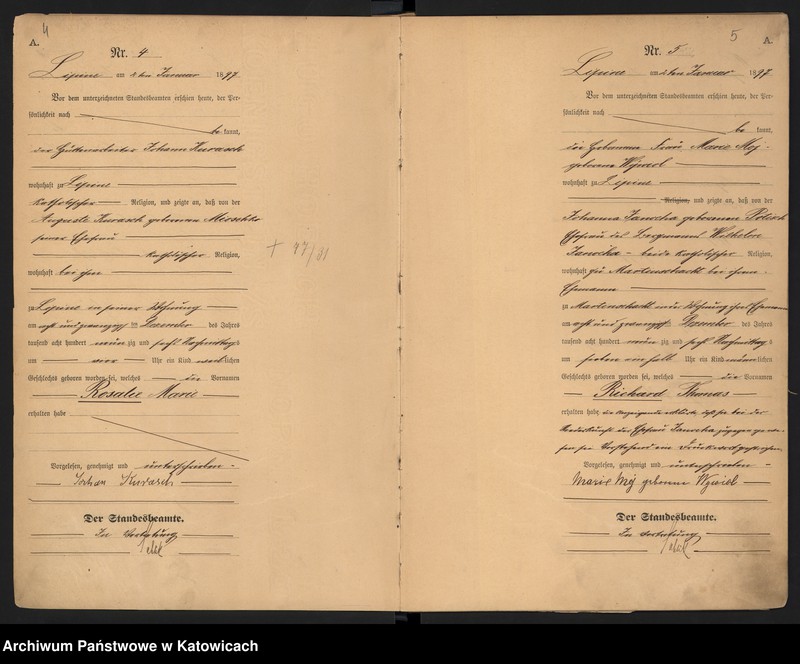 4
A.
Nr. 4
Lipine am 2ten Januar 1897
Vor dem unterzeichneten Standesbeamten erschien heute, der Per-
sönlichkeit nach
be kannt,
der Hüttenarbeiter Johann Kurasch
wohnhaft zu Lipine
katholischer Religion, und zeigte an, daß von der
Auguste Kurasch geborenen
seiner Ehefrau
katholischer Religion,
wohnhaft bei ihm
zu Lipine in seiner Wohnung
am acht und zwanzigsten Dezember des Jahres
tausend acht hundert neunzig und sechs Nachmittags
um vier Uhr ein Kind weiblichen
Geschlechts geboren worden sei, welches die Vornamen
Rosalie Marie
erhalten habe
Vorgelesen, genehmigt und unterschrieben
Johan Kurasch
Der Standesbeamte.
In Vertretung
+ 77/31
5
A.
Nr. 5
Lipine am 2ten Januar 1897
Vor dem unterzeichneten Standesbeamten erschien heute, der Per-
sönlichkeit nach
be kannt,
die Hebamme Frau Marie Moj
geborene
wohnhaft zu Lipine
Religion, und zeigte an, daß von der
Johanna geborenen
Ehefrau des Bergmanns Wilhelm
beide katholischer Religion,
wohnhaft zu Martenschacht bei ihrem
Ehemann
zu Martenschacht in der Wohnung ihres Ehemannes
am acht und zwanzigsten Dezember des Jahres
tausend acht hundert neunzig und sechs Nachmittags
um sieben ein halb Uhr ein Kind männlichen
Geschlechts geboren worden sei, welches die Vornamen
Richard Thomas
erhalten habe, die Anzeigende erklärte, daß sie bei der
Niederkunft der Ehefrau zugegen gewe-
sen sei. Vorstehend ein Druckwort gestrichen.
Vorgelesen, genehmigt und unterschrieben
Marie Moj geborene
Der Standesbeamte.
In Vertretung
Archiwum Państwowe w Katowicach